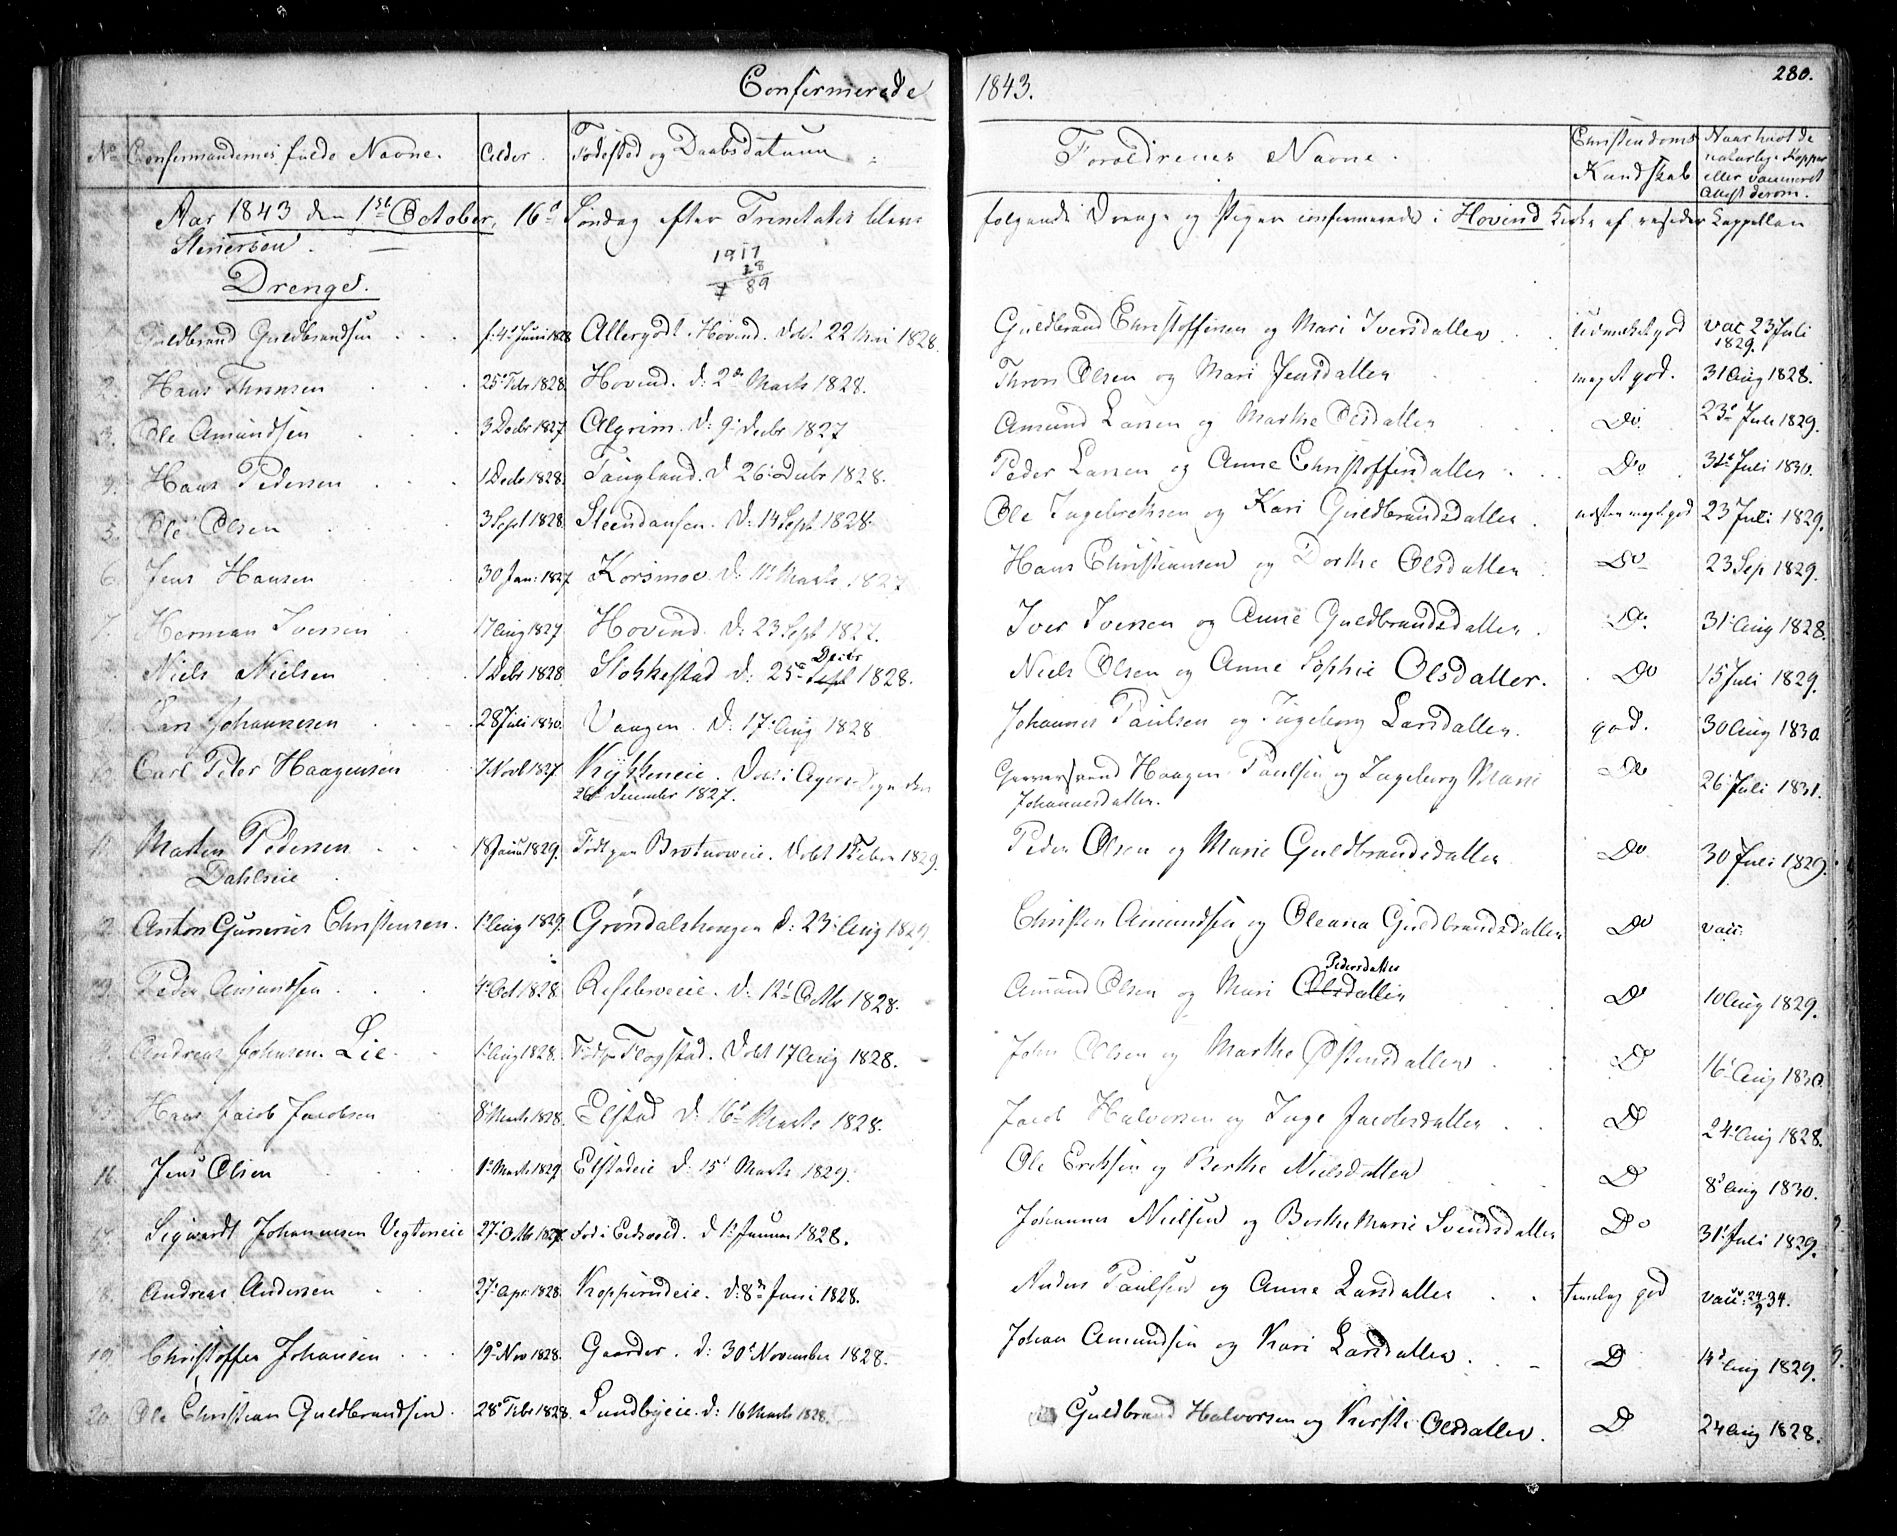 Confirmerede 1843. 280.
No Confirmandernes fulde Navne. Alder. Fødested og Daabsdatum Forældrenes Navne. Christendoms Kundskab Naar havt de naturlige Kopper eller vaccineret Attest derom.
Aar 1843 den 1st October, 16d Søndag efter Trinitatis bleve følgende Drenge og Piger confirmerede i Hovind Kirke af resider Kappellan
Stenersen.
1917
28
89
Drenge.
Guldbrand Guldbrandsen f. 4d Juni 1828 Allergodt. Hovind. Døbt 22 1828. Guldbrand Christoffersen og Mari Iversdatter Udmærket god vac 23 Juli 1829.
2. Hans Thronsen 25d Febr 1828 Hovind. d: 2den Marts 1828. Thron Olsen og Mari Jensdatter meget god. 31 Aug 1828.
3. Ole Amundsen 3 Decbr 1827 Algrim. d: 9d Decbr 1827 Amund Larsen og Marthe Olsdatter Do 23d Juli 1829.
4. Hans Pedersen 1 Decbr 1828. d 26d Decbr 1828. Peder Larsen og Anne Christoffersdatter Do 31d Juli 1830.
5. Ole Olsen 3 Sept 1828 D. 14 Sept 1828. Ole Ingebretsen og Kari Guldbrandsdatter næsten meget god 23 Juli 1829.
6. Jens Hansen 30 Jan: 1827 Korsmoe d. 11d Marts 1827 Hans Christiansen og Dorthe Olsdatter Do 23 Sep 1829.
7. Herman Iversen 17 Aug 1827 Hovind. d: 23 Sept 1827. Iver Iversen og Anne Guldbrandsdatter. Do 31d Aug 1828.
Niels Nielsen 1 Debr 1828 Slokkestad d: 25d Sept Decbr 1828. Niels Olsen og Anne Sophie Olsdatter. Do 15 Juli 1829.
Lars Johannesen 28 Juli 1830. Vaagen. d: 17d Aug 1828 Johannes Paulsen og Ingeborg Larsdatter. god. 30 Aug 1830
10 Carl Peter Haagensen 7 Novb 1827 Døbt i Agers Sogn den 26d December 1827. Haagen Paulsen og Ingeborg Marie Johannesdatter. Do 26d Juli 1831.
11. Morten Pedersen Dahlseie 18 Januar 1829. Født paa Døbt 1 Febr 1829. Peder Olsen og Marie Guldbrandsdatter Do 30 Juli 1829.
12 Anton Gunerius Christensen. 1d Aug 1829. Grøndalshengen d: 23d Aug 1829 Christen Amundsen og Oleana Guldbrandsdatter Do vacc:
Peder Amundsen 4d Oct 1828 d: 12d Octbr 1828. Amund Olsen og Mari Olsdatter Pedersdatter D 10 Aug 1829.
Andreas Johnsen Lie. 1d Aug 1828. Flogstad. Døbt 17 Aug 1828. John Olsen og Marthe Østensdatter Do 16d Aug 1830
Hans Jacob Jacobsen 8d Marts 1828. Elstad d: 16d Marts 1828. Jacob Halvorsen og Inge Jacobsdatter D 24d Aug 1828.
16. Jens Olsen 1d Marts 1829 Elstadeie d: 15d Marts 1829. Ole Eriksen og Berthe Nielsdatter D 8d Aug 1830.
17. Sigwardt Johannesen Vegteneie 27d Octbr 1827 Fød i Eidsvold. d 1d Januar 1828. Johannes Nielsen og Berthe Marie Svendsdatter Do 31d Juli 1829.
18. Andreas Andersen 27d Apr: 1828 Kopperudeie. d: 8de Juni 1828. Anders Paulsen og Anne Larsdatter temelig god vacc: 24/9 34.
19. Christoffer Johansen 19d Nov 1828. Gaarder. d: 30d November 1828. Johan Amundsen og Kari Larsdatter. D 14d Aug 1829.
20. Ole Christian Guldbrandsen. 28d Febr 1828. Sundbyeie. d: 16 Marts 1828. Guldbrand Halvorsen og Kersti Olsdatter. D 24 Aug 1828.